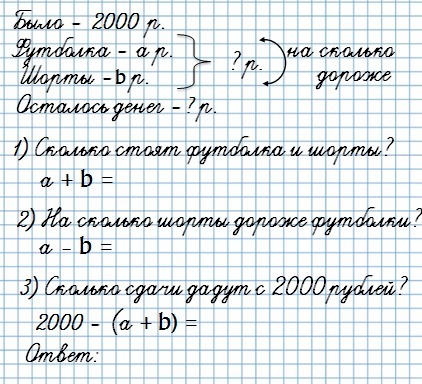 Было - 2000 р.
Футболка - a р.
Шорты - b р.
? р.
на сколько
дороже
Осталось денег - ? р.
1) Сколько стоят футболка и шорты?
a + b =
2) На сколько шорты дороже футболки?
a - b =
3) Сколько сдачи дадут с 2000 рублей?
2000 - (a + b) =
Ответ: